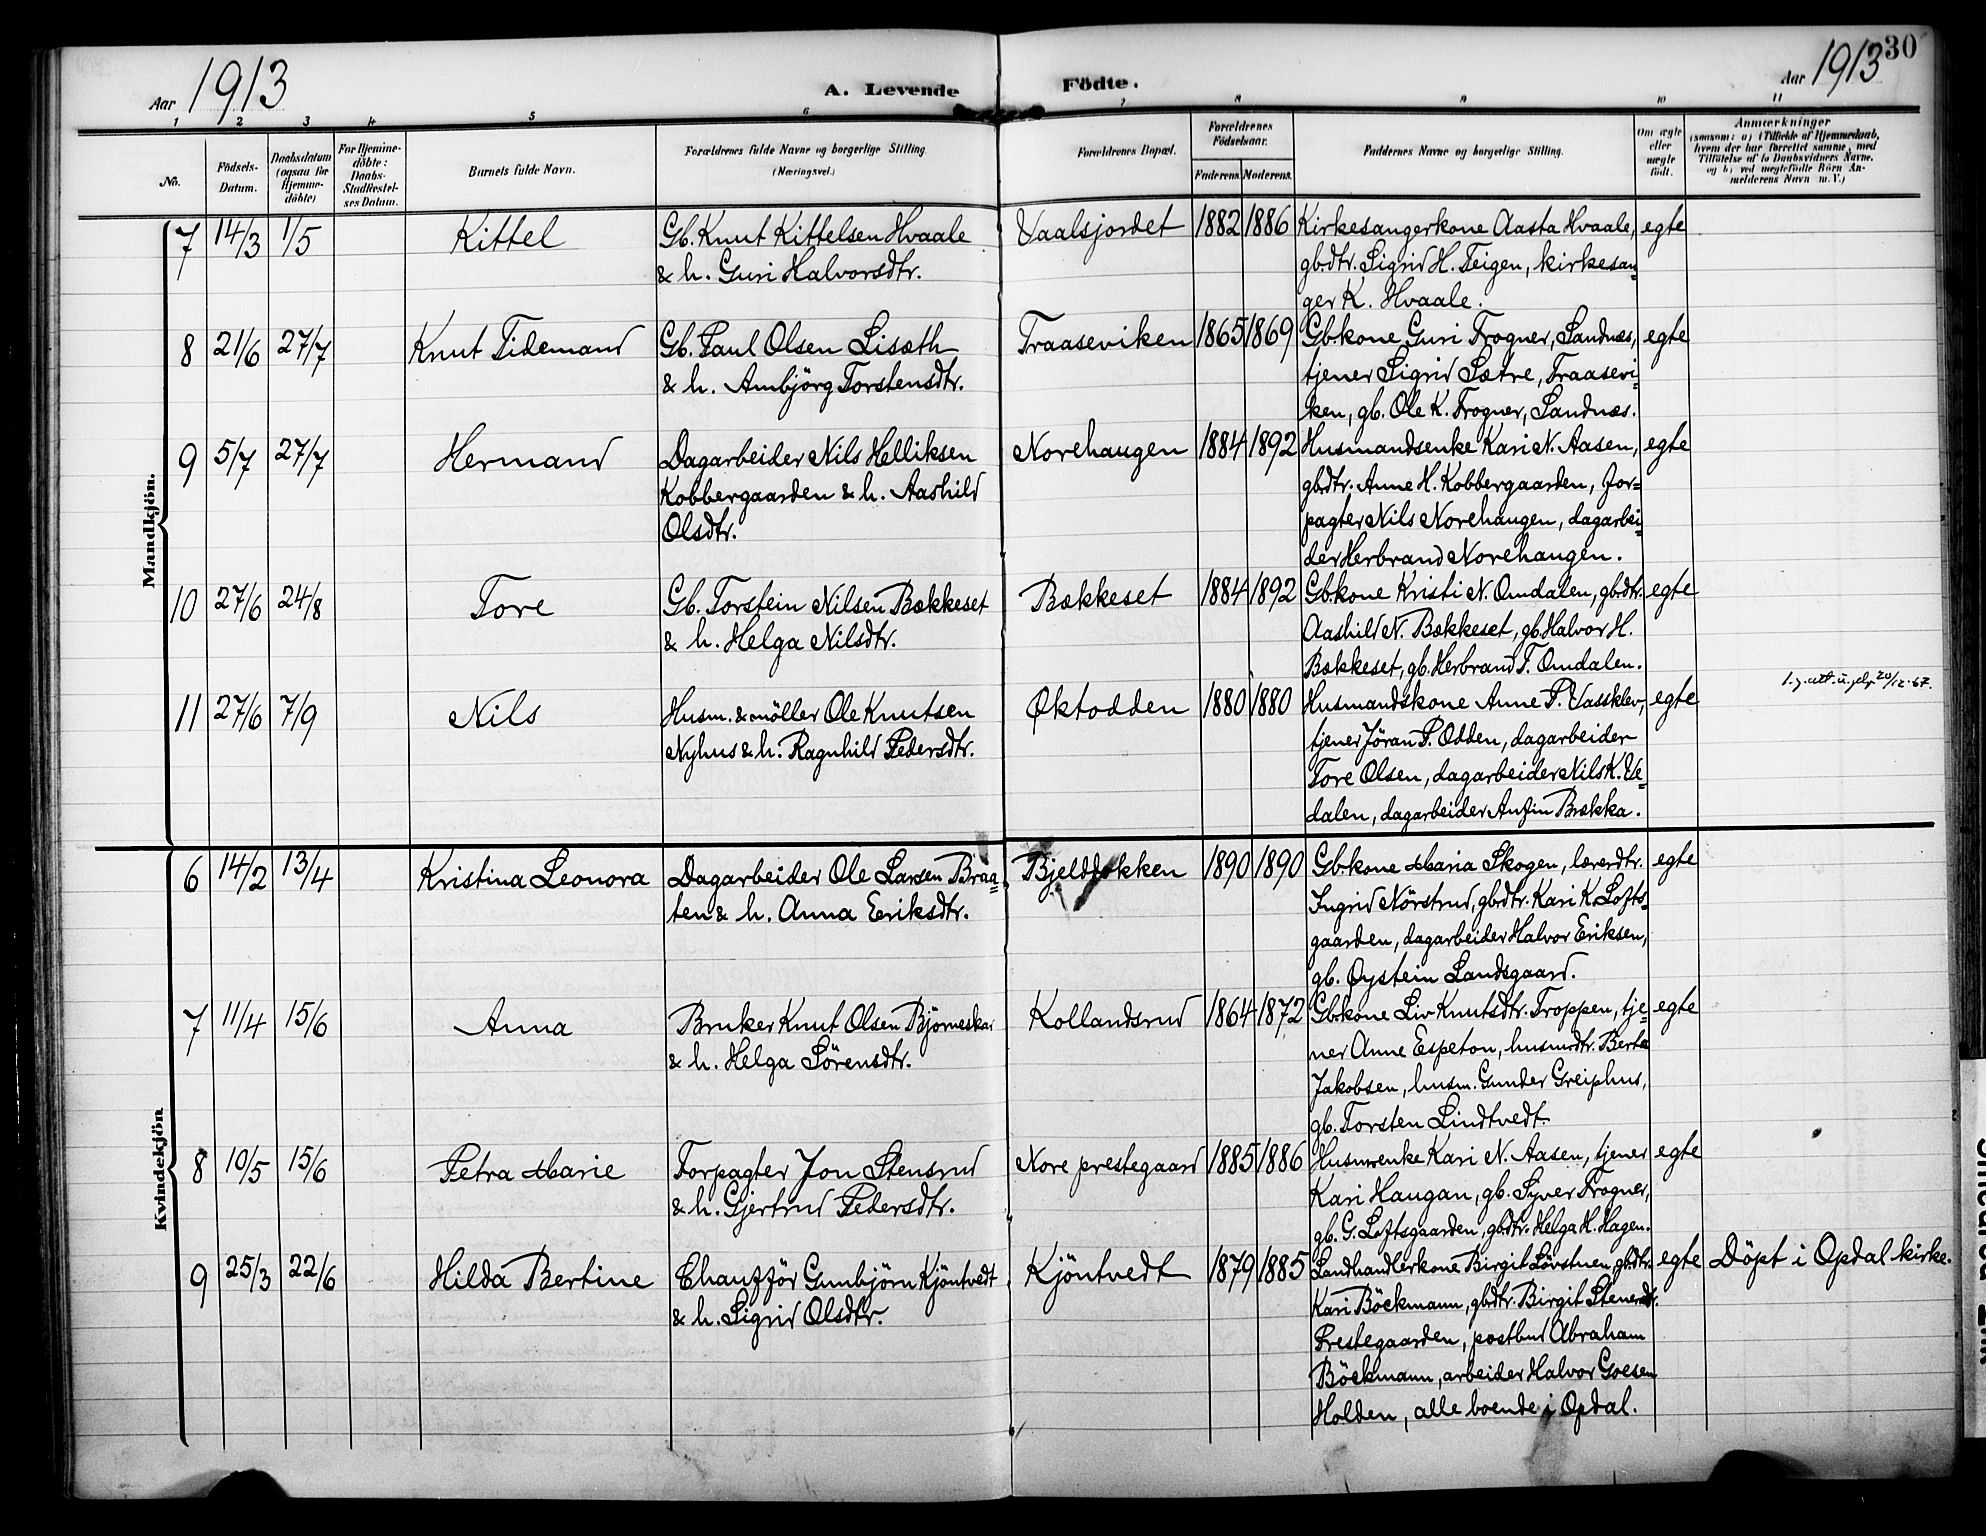 Aar 1913
A. Levende Födte.
Aar 1913
30
1 2 3 4 5 6 7 8 9 10 11
No.
Födsels-Datum.
Daabsdatum (ogsaa for Hjemmedöbte)
For Hjemmedöbte: Daabs-Stadfæstelses Datum.
Barnets fulde Navn.
Forældrenes fulde Navne og borgerlige Stilling
(Næringsvei.)
Forældrenes Bopæl.
Forældrenes Födselsaar.
Faderens. Moderens.
Faddernes Navne og borgerlige Stilling.
Om ægte eller uægte födt.
Anmærkninger
(saasom: a) i Tilfælde af Hjemmedaab, hvem der har forrettet samme, med Tilföielse af to Daabsvidners Navne, og b) ved uægtefödte Börn Anmelderens Navn m. V.)
Mandkjön.
7 14/3 1/5 Kittel Gb. Knut Kittelsen Hvaale Vaalsjordet 1882 1886 Kirkesangerkone Aasta Hvaale, egte
& h. Guri Halvorsdtr. gbdtr. Sigrid H. Teigen, kirkesan=
ger K. Hvaale.
8 21/6 27/7 Knut Tidemand Gb. Paul Olsen Lisæth Traaseviken 1865 1869 Gbkone Guri Frogner, Sandnæs, egte
& h. Ambjörg Torstensdtr. tjener Sigrid Sætre, Traasevi=
ken, gb. Ole K. Frogner, Sandnæs.
9 5/7 27/7 Hermand Dagarbeider Nils Helliksen Norehaugen 1884 1892 Husmandsenke Kari N. Aasen, egte
Kobbergaarden & h. Aashild gbdtr. Anne H. Kobbergaarden, for=
Olsdtr. pagter Nils Norehaugen, dagarbei=
der Herbrand Norehaugen.
10 27/6 24/8 Tore Gb. Torstein Nilsen Bækkeset Bækkeset 1884 1892 Gbkone Kristi N. Omdalen, gbdtr. egte
& h. Helga Nilsdtr. Aashild N. Bækkeset, gb. Halvor H.
Bækkeset, gb. Herbrand T. Omdalen.
11 27/6 7/9 Nils Husm. & möller Ole Knutsen Øktodden 1880 1880 Husmandskone Anne P. Vassklev, egte 20/12-67.
Nyhus & h. Ragnhild Pedersdtr. tjener Jöran P. Odden, dagarbeider
Tore Olsen, dagarbeider Nils K. Ve=
dalen, dagarbeider Anfin Brækka.
Kvindekjön
6 14/2 13/4 Kristina Leonora Dagarbeider Ole Larsen Braa= Bjeldfokken 1890 1890 Gbkone Maria Skogen, lærerdtr. egte
ten & h. Anna Eriksdtr. Ingrid Nörstrud, gbdtr. Kari K. Lofts=
gaarden, dagarbeider Halvor Eriksen,
gb. Øystein Landsgaard.
7 11/4 15/6 Anna Bruker Knut Olsen Björneskar Kollandsrud 1864 1872 Gbkone Liv Knutsdtr. Troppen, tje= egte
& h. Helga Sörensdtr. ner Anne Espeton, husmdtr. Berta
Jakobsen, husm. Gunder Greiphus,
gb. Torsten Lindtvedt.
8 10/5 15/6 Petra Marie Forpagter Jon Stensrud Nore prestegaard 1885 1886 Husmenke Kari N. Aasen, tjener egte
& h. Gjertrud Pedersdtr. Kari Haugan, gb. Syver Frogner,
gb. G. Loftsgaarden, gbdtr. Helga H. Hagen.
9 25/3 22/6 Hilda Bertine Chaufför Gunbjörn Kjöntvedt Kjöntvedt 1879 1885 Landhandlerkone Birgit Lövstuen, gbdtr. egte Döpt i Opdal kirke.
& h. Sigrid Olsdtr. Kari Böckmann, gbdtr. Birgit
Prestegaarden, postbud Abraham
Böckmann, arbeider Halvor Goesen
Holden, alle boende i Opdal.